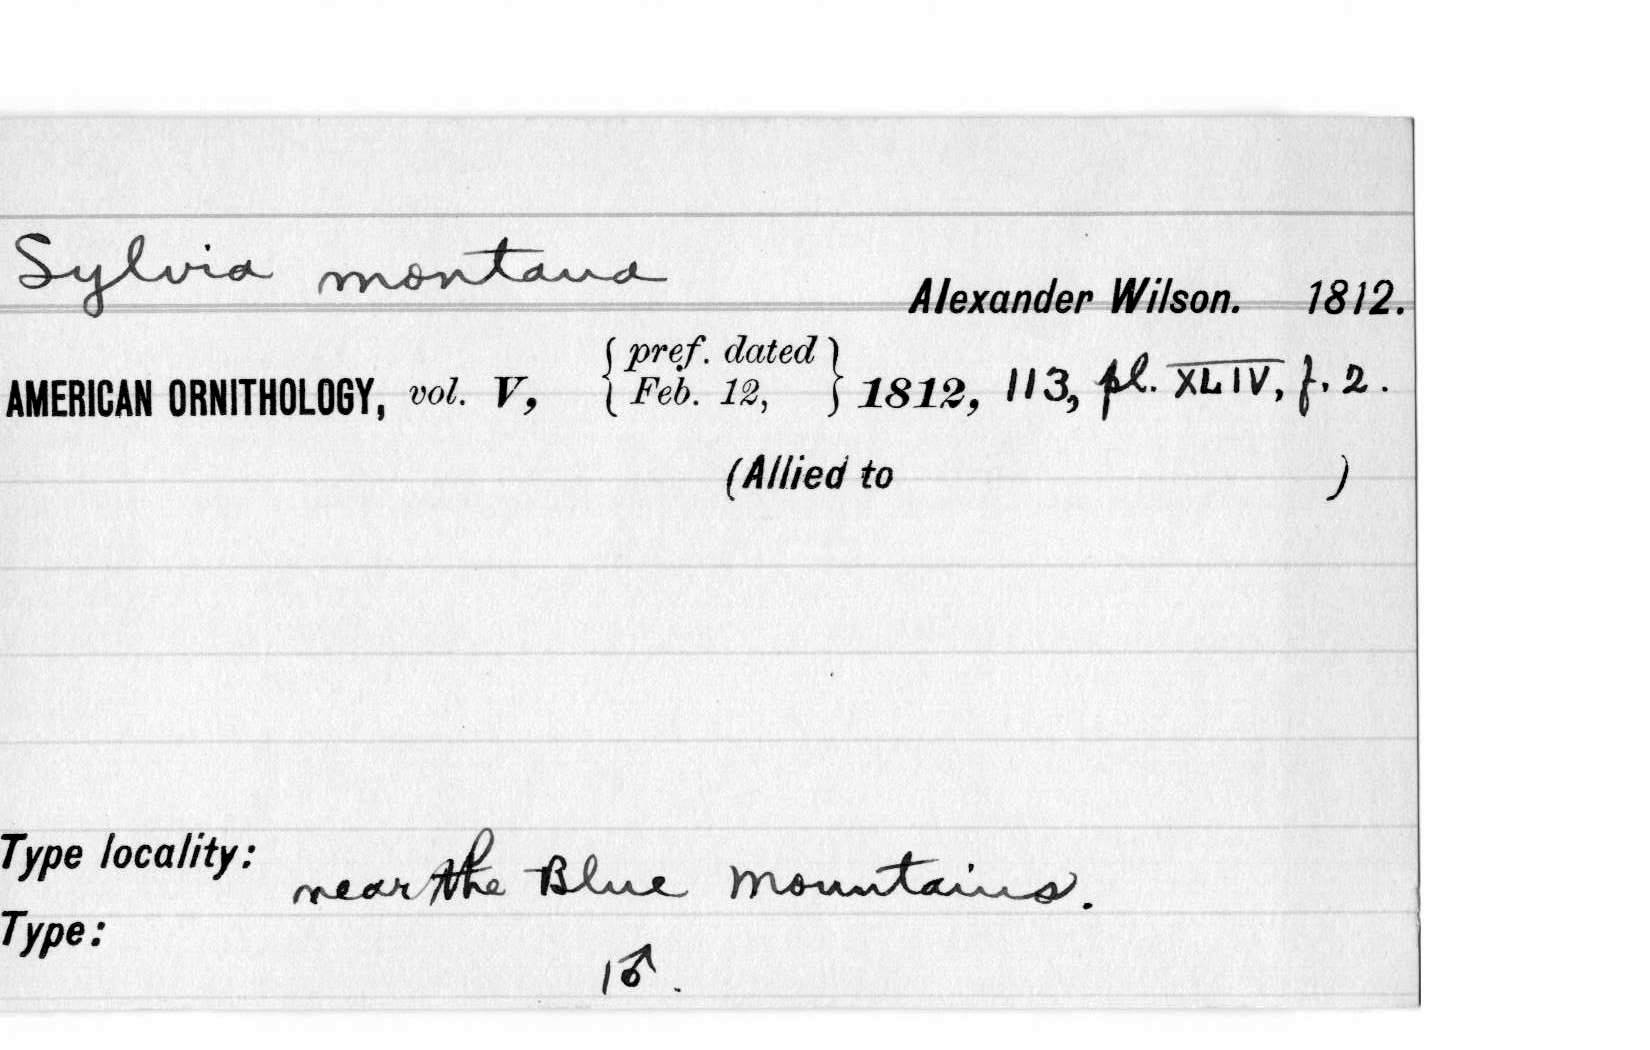 Sylvia montana
Alexander Wilson. 1812.
AMERICAN ORNITHOLOGY, vol. V, { pref. dated Feb. 12, } 1812, 113, pl. XLIV, f. 2.
(Allied to )
Type locality:
near the Blue Mountains.
Type:
1♂.